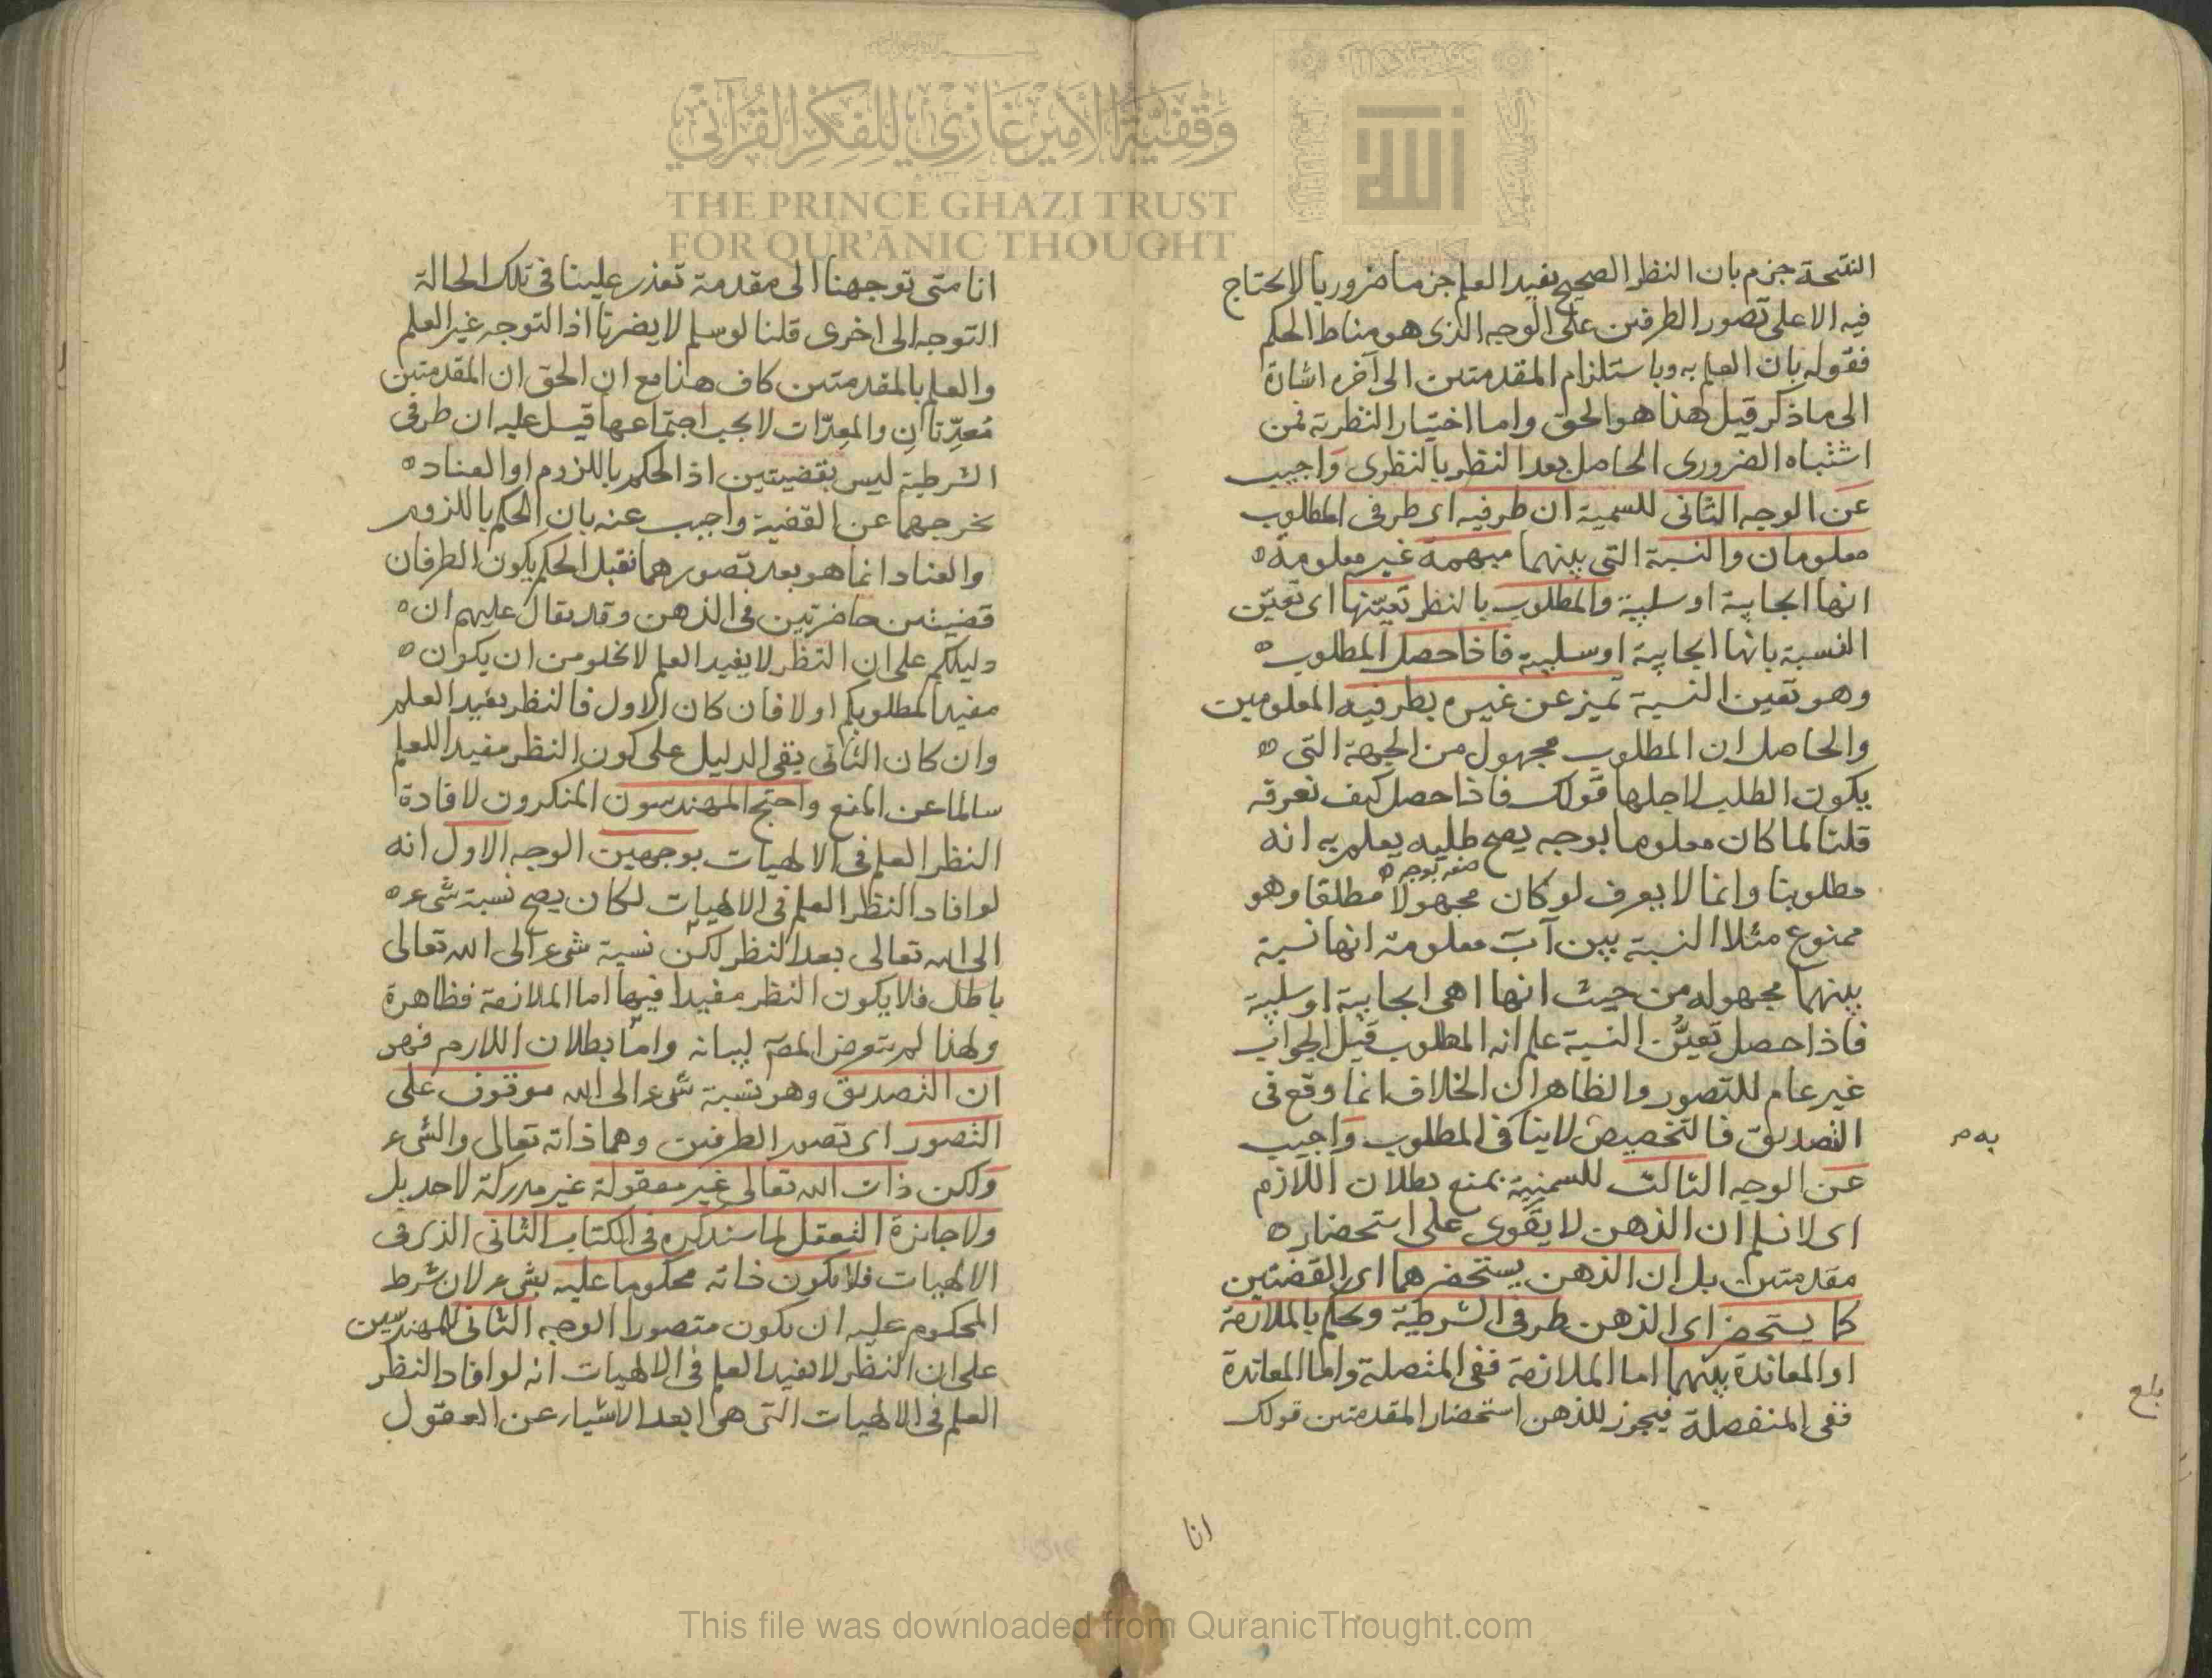 وقفية الأمير غازي للفكر القرآني
THE PRINCE GHAZI TRUST
FOR QUR'ĀNIC THOUGHT
النتيحة جزم بان النظر الصحيح يفيد العلم جزما ضروريا لا يحتاج
فيه الا على تصور الطرفين على الوجه الذى هو مناط الحكم
فقوله بان العلم به وباستلزام المقدمتين الى آخره اشارة
الى ما ذكر قيل هذا هو الحق واما اختيار النظرية فمن
اشتباه الضرورى الحاصل بعد النظر بالنظرى واجيب
عن الوجه الثانى للسمية ان طرفيه اى طرفى المطلوب
معلومان والنسبة التى بينهما مبهمة غير معلومة
انها ايجابية او سلبية والمطلوب بالنظر تعينها اى تعين
النسبة بانها ايجابية او سلبية فاذا حصل المطلوب
وهو تعين النسبة تميز عن غيره بطرفيه المعلومين
والحاصل ان المطلوب مجهول من الجهة التى
يكون الطلب لاجلها قولك فاذا حصل كيف تعرفه
قلنا لما كان معلوما بوجه يصح طلبه يعلم به انه
مطلوبنا وانما لا يعرف لو كان مجهولا مطلقا وهو
ممنوع مثلا النسبة بين آ ب معلومة انها نسبة
بينهما مجهوله من حيث انها اهى ايجابية او سلبية
فاذا حصل تعين النسبة علم انه المطلوب قيل الجواب
غير عام للتصور والظاهر ان الخلاف انما وقع فى
التصديق فالتخصيص لا ينافى المطلوب واجيب
به م
عن الوجه الثالث للسمنية بمنع بطلان اللازم
اى لا نسلم ان الذهن لا يقوى على استحضار
مقدمتين بل ان الذهن يستحضرهما اى القضيتين
كما يستحضر اى الذهن طرفى الشرطية ويحكم بالملازمة
او المعاندة بينهما اما الملازمة ففى المتصلة واما المعاندة
بلغ
ففى المنفصلة فيجوز للذهن استحضار المقدمتين قولك
انا
انا متى توجهنا الى مقدمة تعذر علينا فى تلك الحالة
التوجه الى اخرى قلنا لو سلم لا يضرنا اذ التوجه غير العلم
والعلم بالمقدمتين كاف هنا مع ان الحق ان المقدمتين
مُعِدّتان والمعِدّات لا يجب اجتماعها قيل عليه ان طرفى
الشرطية ليس بقضيتين اذ الحكم باللزوم او العناد
يخرجهما عن القضية واجيب عنه بان الحكم باللزوم
والعناد انما هو بعد تصورهما فقبل الحكم يكون الطرفان
قضيتين حاضرتين فى الذهن وقد يقال عليهم ان
دليلكم على ان النظر لا يفيد العلم لا يخلو من ان يكون
مفيدا لمطلوبكم او لا فان كان الاول فالنظر يفيد العلم
وان كان الثانى يقى الدليل على كون النظر مفيدا للعلم
سالما عن المنع واحتج المهندسون المنكرون لافادة
النظر العلم فى الالهيات بوجهين الوجه الاول انه
لو افاد النظر العلم فى الالهيات لكان يصح نسبة شىء
الى الله تعالى بعد النظر لكن نسبة شىء الى الله تعالى
باطل فلا يكون النظر مفيدا فيها اما الملازمة فظاهرة
ولهذا لم يتعرض المصَ لبيانه واما بطلان اللازم فهو
ان التصديق وهو نسبة شىء الى الله موقوف على
التصور اى تصور الطرفين وهما ذاته تعالى والشىء
ولكن ذات الله تعالى غير معقولة غير مدركة لاحد بل
ولا جائزة التعقل لما سنذكره فى الكتاب الثانى الذى فى
الالهيات فلا يكون ذاته محكوما عليه بشىء لان شرط
المحكوم عليه ان يكون متصورا الوجه الثانى للمهندسين
على ان النظر لا يفيد العلم فى الالهيات انه لو افاد النظر
العلم فى الالهيات التى هى ابعد الاشياء عن العقول
This file was downloaded from QuranicThought.com